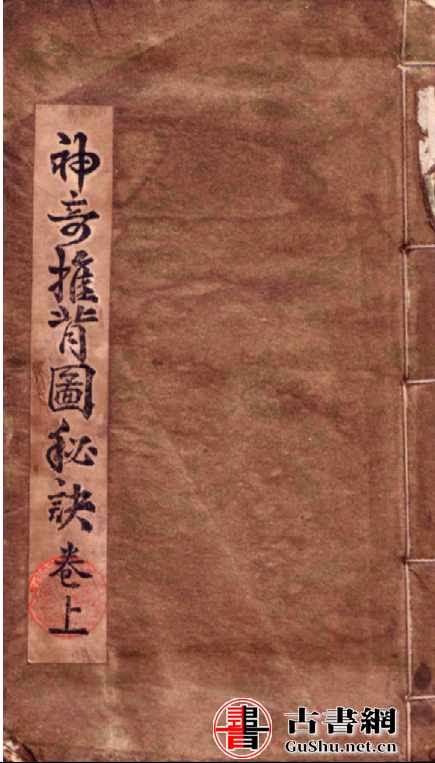 神奇推背圖秘訣卷上
書
古書網
GuShu.net.cn